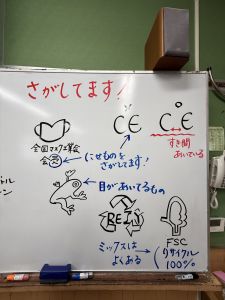 さがしてます!
CE
CE
すき間
あいている
全国マスク工業会
会員
にせものを
さがしてます!
目があいてるもの
ミックスは
よくある
FSC
リサイクル
100%